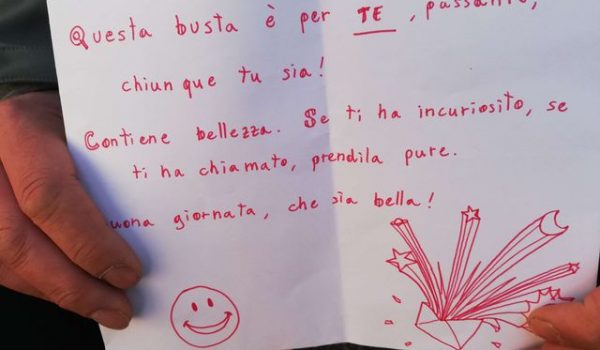 Questa busta è per TE, passante,
chiunque tu sia!
Contiene bellezza. Se ti ha incuriosito, se
ti ha chiamato, prendila pure.
uona giornata, che sia bella!